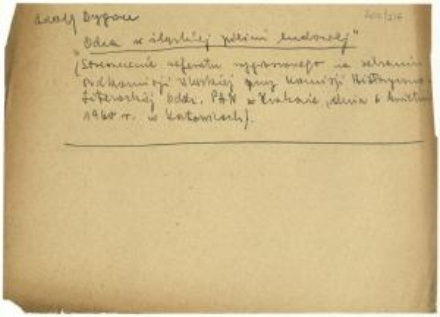 Adolf Dygacz
"Odra w śląskiej pieśni ludowej"
(Streszczenie referatu wygłoszonego na zebraniu
Podkomisji Śląskiej przy Komisji Historyczno-
Literackiej Oddz. PAN w Krakowie, dnia 6 kwietnia
1960 r. w Katowicach).